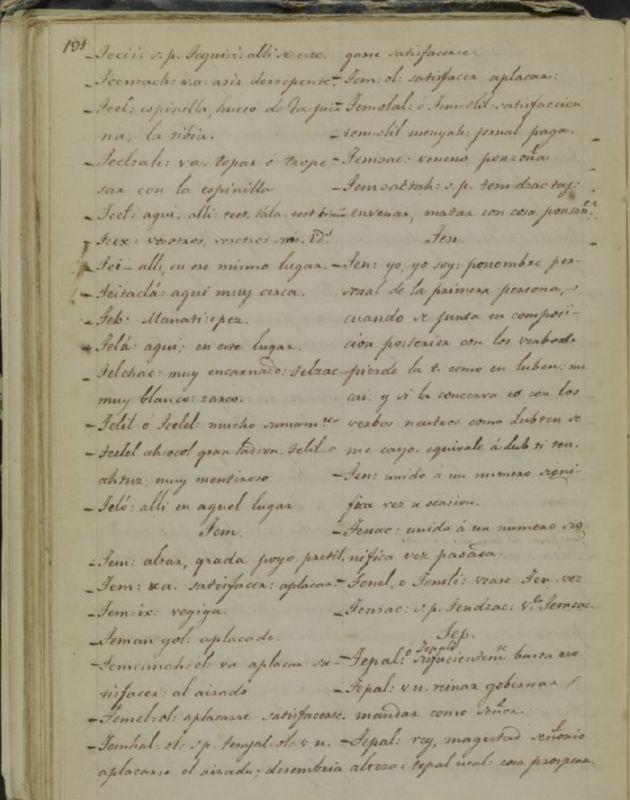 191
Tecii: s.p. Teguiri: alli se ere.
Tecmach: v.a. asir derrepente.
Teel: espinilla, hueso de la pier
na, la tibia.
Teelzah: va. topar ó trope
sar con la espinilla
Teet: aqui, alli: teet, tela. teet
Teex: vosotros, vosotros ms. id.
Tei alli, en ese mismo lugar.
Teitaclá: aqui muy cerca.
Tek: Manati: pez.
Telá: aqui; en este lugar.
Telchac: muy encarnado: telzac
muy blanco: zarco.
Telil ó Teelel: mucho sumam.te
teelel ah-ocol gran ladron. telil
ahtuz, muy mentiroso
Teló: alli en aquel lugar
Tem.
Tem: altar, grada poyo, pretil.
Tem: va. satisfacer: aplacar
Tem-ix: vegiga.
Teman yol: aplacado.
Temcunah-ol: va aplacar sa
tisfacer: al airado
Temel-ol: aplacarse satisfacerse.
Temhal-ol: s.p. temjal-ol: v n.
aplacarse el airado; desembria
garse satisfacerse.
Tem: ol: satisfacer aplacar:
Temolal: ó Tem-olil: satisfaccion
tem-olil menyah: jornal paga.
Temzac: veneno, ponzoña
Temzactah: s.p. tem-dzac-taj:
envenar, matar con cosa ponsoñ.a
Ten.
Ten: yo, yo soy: pronombre per-
sonal de la primera persona,
cuando se junta en composi-
cion posterior con los verbos
pierde la t. como en luben: me
cai. y si la conserva es con los
verbos neutros como lubten se
me cayo. equivale á lub ti ten.
Ten: unido á un numero signi-
fica vez u ocasion.
Tenac: unido á un numero sig
nifica vez pasada.
Tenel, o Tenili: vease Ten. vez
Tenzac: s.p. tendzac: V.e Temzac.
Tep.
Tepal: ó Tepalil sufucientem.te basta
Tepal: v.n. reinar gobernar
mandar como señor.
Tepal: rey, magestad señorio
alteza: tepal ucal: cosa prospera.